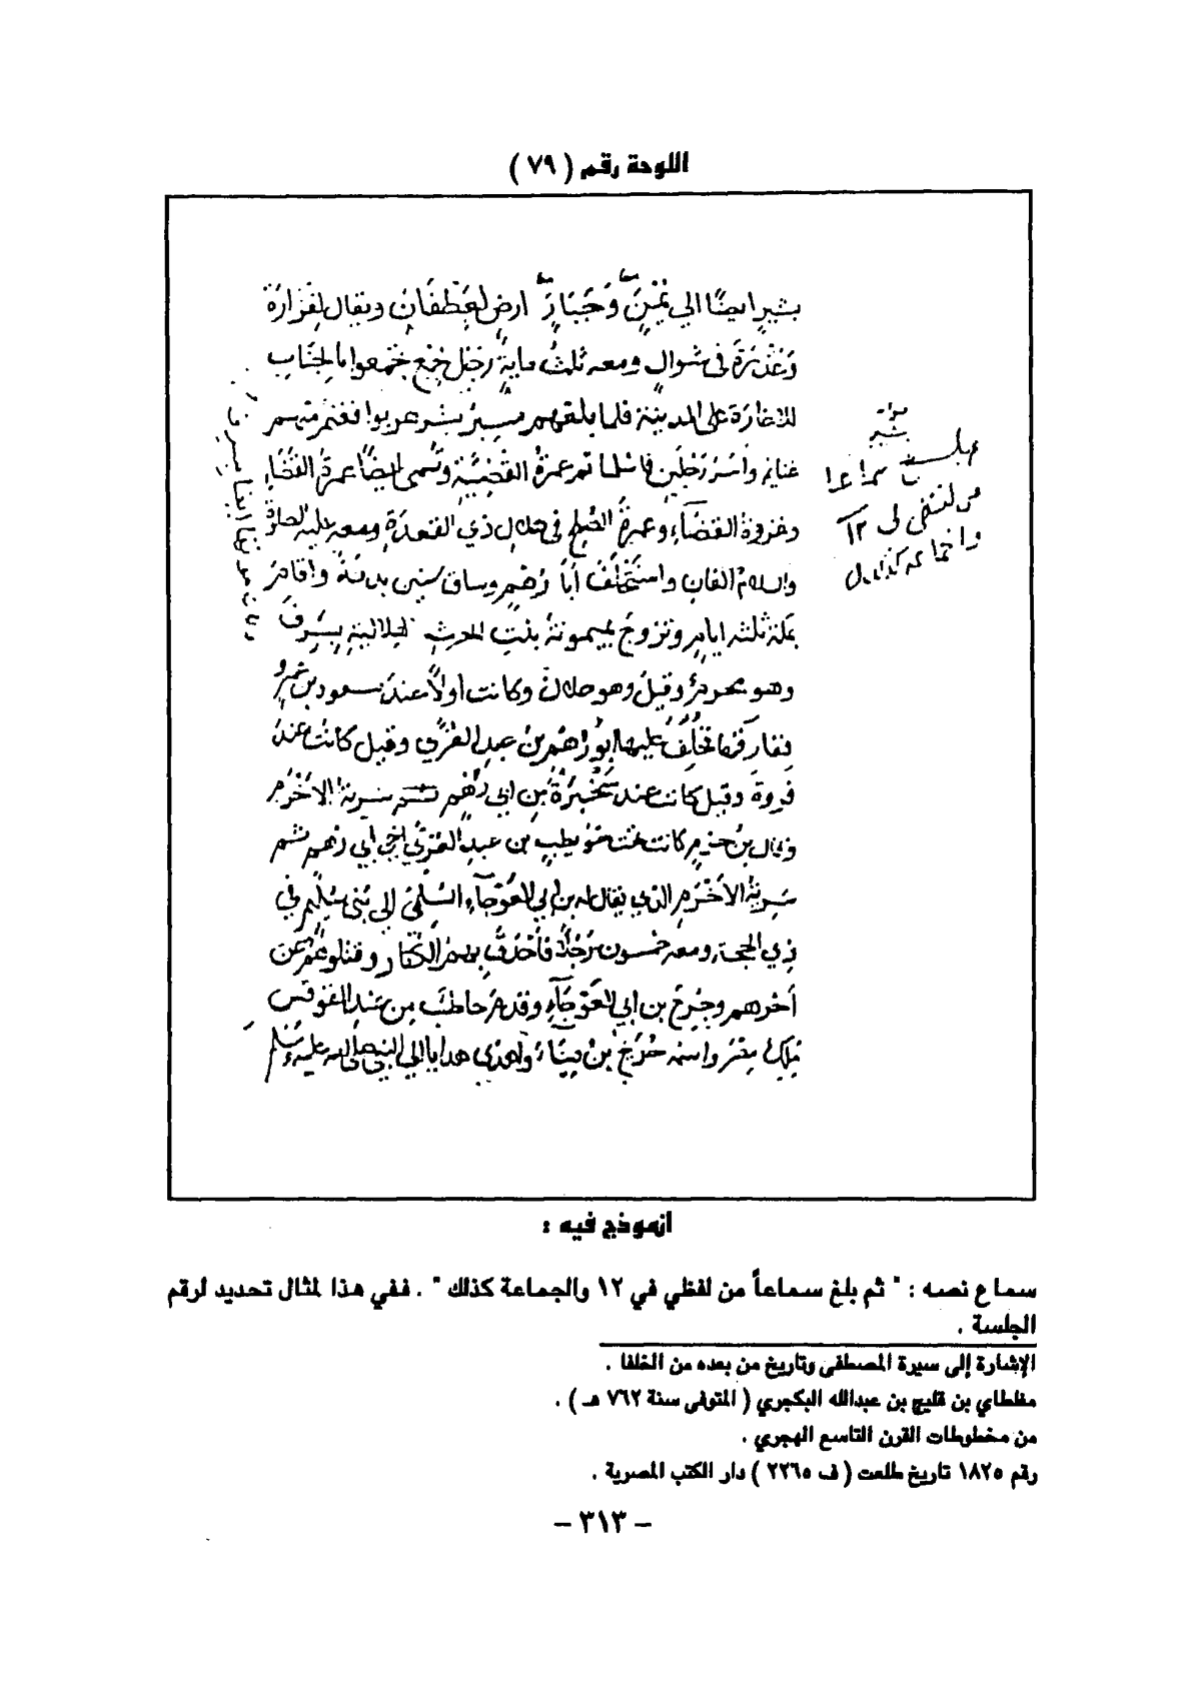 اللوحة رقم ( ٧٩ )
بشيرٍ ايضًا الي يَمْنٍ وَجَبَارٍ ارض لغَطَفَان ويقال لِفَزارَة
وَعُذرَةَ في شوال ومعه ثلثُ مايةِ رَجُل لجمع تجمعوا بالجناب
للاغارَة على المدينة فلما بلغهم مسيرُ بشير هربوا فغنم منهم
غنايم وأسَر رَجُلَين فاسْلما ثم عمرةُ القضيّة وتُسمى ايضًا عمرةُ القَضَاءِ
وغزوةُ القضاءِ وعمرةُ الصُلح في هلال ذي القعدة ومعه عليه الصلوة
والسلامُ الفان واستَخْلَفَ أبا رُهْمٍ وساق ستين بدنةً واقامَ
بمكة ثلثة ايامٍ وتزوجَ بميمونةَ بنتِ الحرثِ الهلاليةِ بِسَرِفَ
وهو محرمٌ وقيل وهو حلالٌ وكانت اولًا عندَ مسعود بن عَمرٍو
ففارقها فخَلَفَ عليها ابو رُهْم بنُ عبدِ العُزَّي وقيل كانت عندَ
فَروةَ وقيل كانت عند سَخْبَرَةَ بن ابي رُهْمٍ ثم سرية الاخْرَم
وقال بن حزمٍ كانت تحت حُوَيطِبِ بن عبدِ العُزَّي اخي ابي رُهم ثم
سَريةُ الاَخْرَمِ الذي يقال له بن ابي العَوْجَآءِ السُلَميِّ الي بَني سُلَيْم في
ذِي الحجة ومعه خمسون رَجُلًا فأحْدَقَ بهم الكفّارُ وقتلوهُمْ عَن
آخرهم وجُرِحَ بن ابي العَوْجَآءِ وقدم حاطبُ من عندِ المقوقس
مَلِك مِصْرَ واسمه جُرَيج بنُ مِينَآءَ وأهدَي هدايا الي النبي صلى الله عليه وسلم
سرية
بشير
ثم بلغ سماعا
من لفظي في ١٢
والجماعة كذلك
انموذج فيه :
سماع نصه : " ثم بلغ سماعاً من لفظي في ١٢ والجماعة كذلك " . ففي هذا لمثال تحديد لرقم
الجلسة .
الإشارة إلى سيرة المصطفى وتاريخ من بعده من الخلفا .
مغلطاي بن قليج بن عبدالله البكجري ( المتوفى سنة ٧٦٢ هـ ) .
من مخطوطات القرن التاسع الهجري .
رقم ١٨٢٥ تاريخ طلعت ( ف ٢٢٦٥ ) دار الكتب المصرية .
– ٣١٣ –